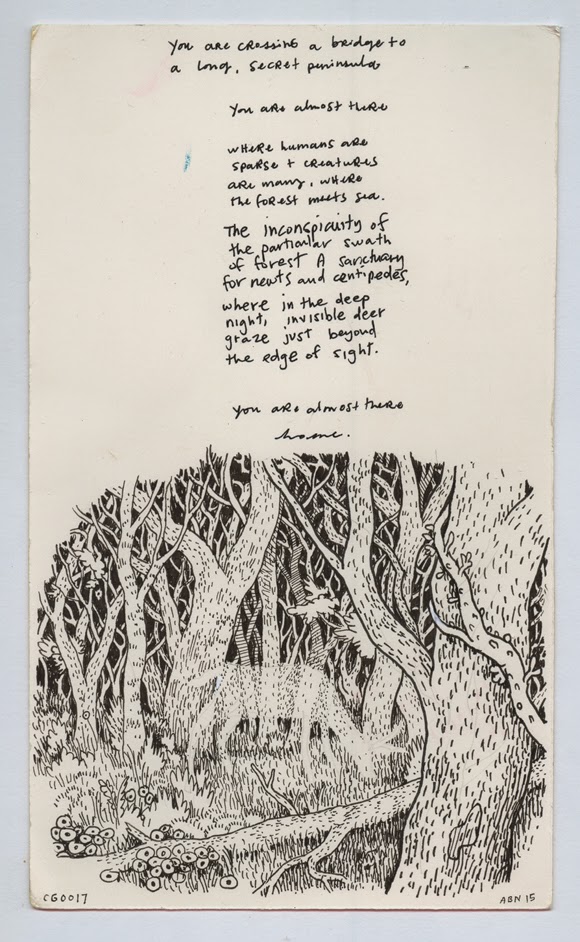 You are crossing a bridge to
a long, secret peninsula
You are almost there
where humans are
sparse + creatures
are many, where
the forest meets sea.
The inconspicuity of
the particular swath
of forest A sanctuary
for newts and centipedes,
where in the deep
night, invisible deer
graze just beyond
the edge of sight.
You are almost there
home.
CG0017
ABN 15